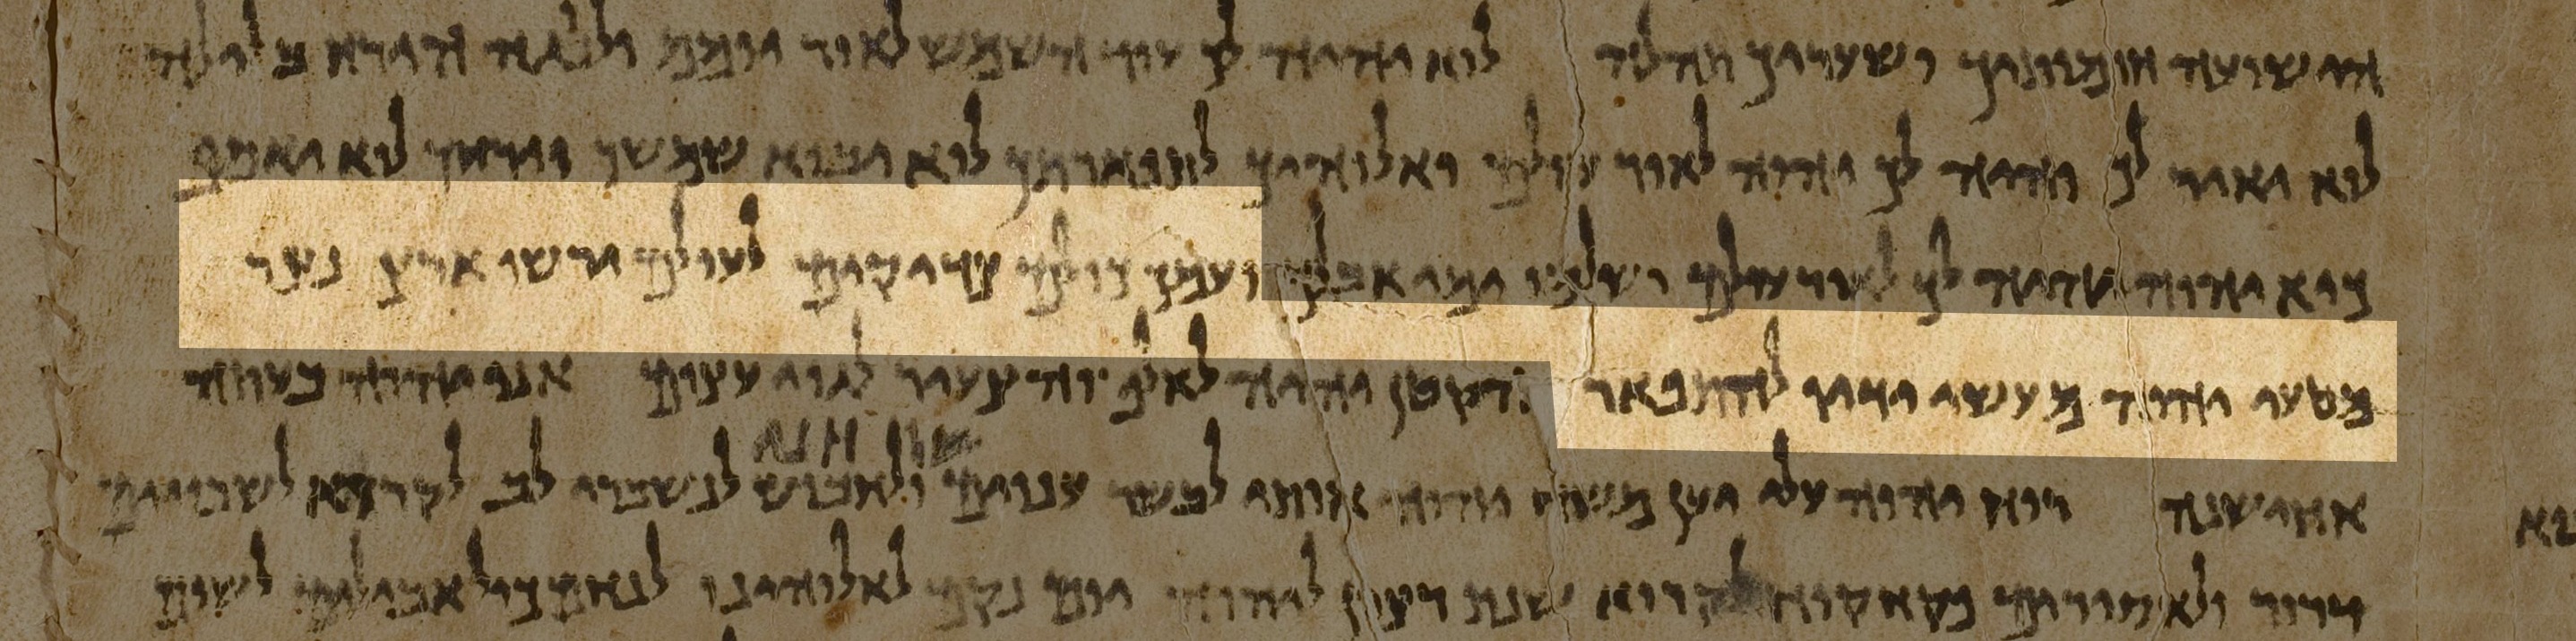 ישועה חומותיך ושעריך תהלה לוא יהיה לך עוד השמש לאור יומם ולנגה הירח בלילה
לוא יאיר לך והיה לך יהוה לאור עולם ואלוהיך לתפארתך לוא יבוא שמשך וירחך לוא יאסף
כיא יהוה יהיה לך לאור עולם ושלמו ימי אבלך ועמך כולם צדיקים לעולם ירשו ארץ נצר
מטעי יהוה מעשי ידיו להתפאר הקטן יהיה לאלף והצעיר לגוי עצום אני יהוה בעתה
שלחני
אחישנה רוח יהוה עלי יען משח יהוה אותי לבשר ענוים ולחבוש לנשברי לב לקרוא לשבויים
דרור ולאסורים פקחקוח לקרוא שנת רצון ליהוה יום נקם לאלוהינו לנחם כול אבילים לשום